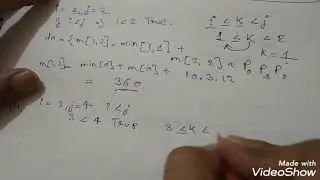 i = 1, j = 2
if i < j  1 < 2 True.
i ≤ k < j
1 ≤ k < 2
k = 1
do - {m[1,2] = min[1,1] + m[2,2] + P₀ P₁ P₂
m[1,2] = min[0] + m[0] + 10.3.12
= 360
i = 3, j = 4  i < j
3 < 4 True
3 ≤ k <
Made with
VideoShow